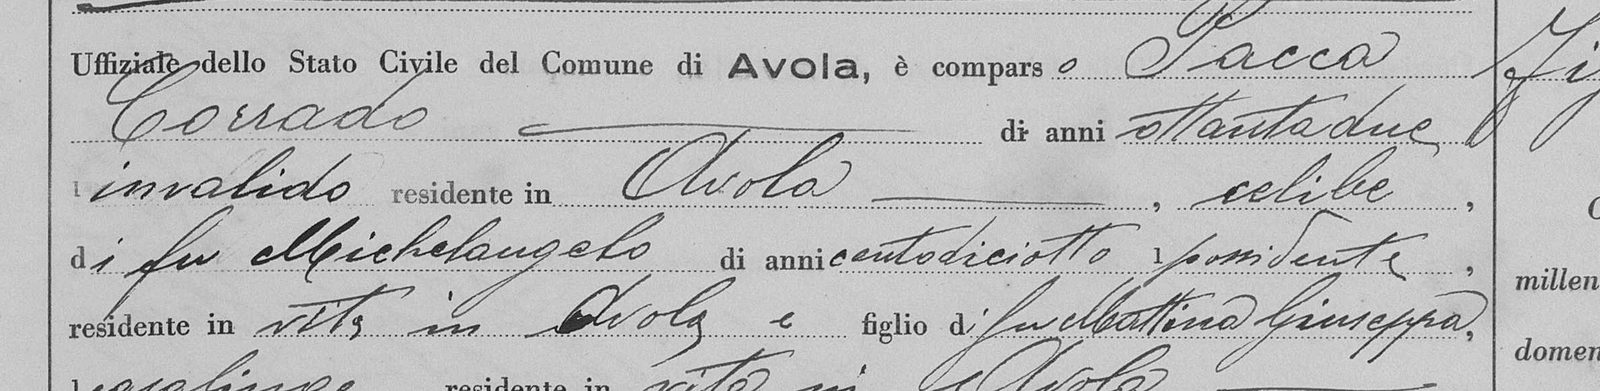 Uffiziale dello Stato Civile del Comune di Avola, è comparso Pacca
Corrado di anni ottantadue
invalido residente in Avola, celibe,
di fu Michelangelo di anni centodiciotto possidente,
residente in vita in Avola e figlio di fu Mattina Giuseppa,
casalinga residente in vita in Avola
millen
domen